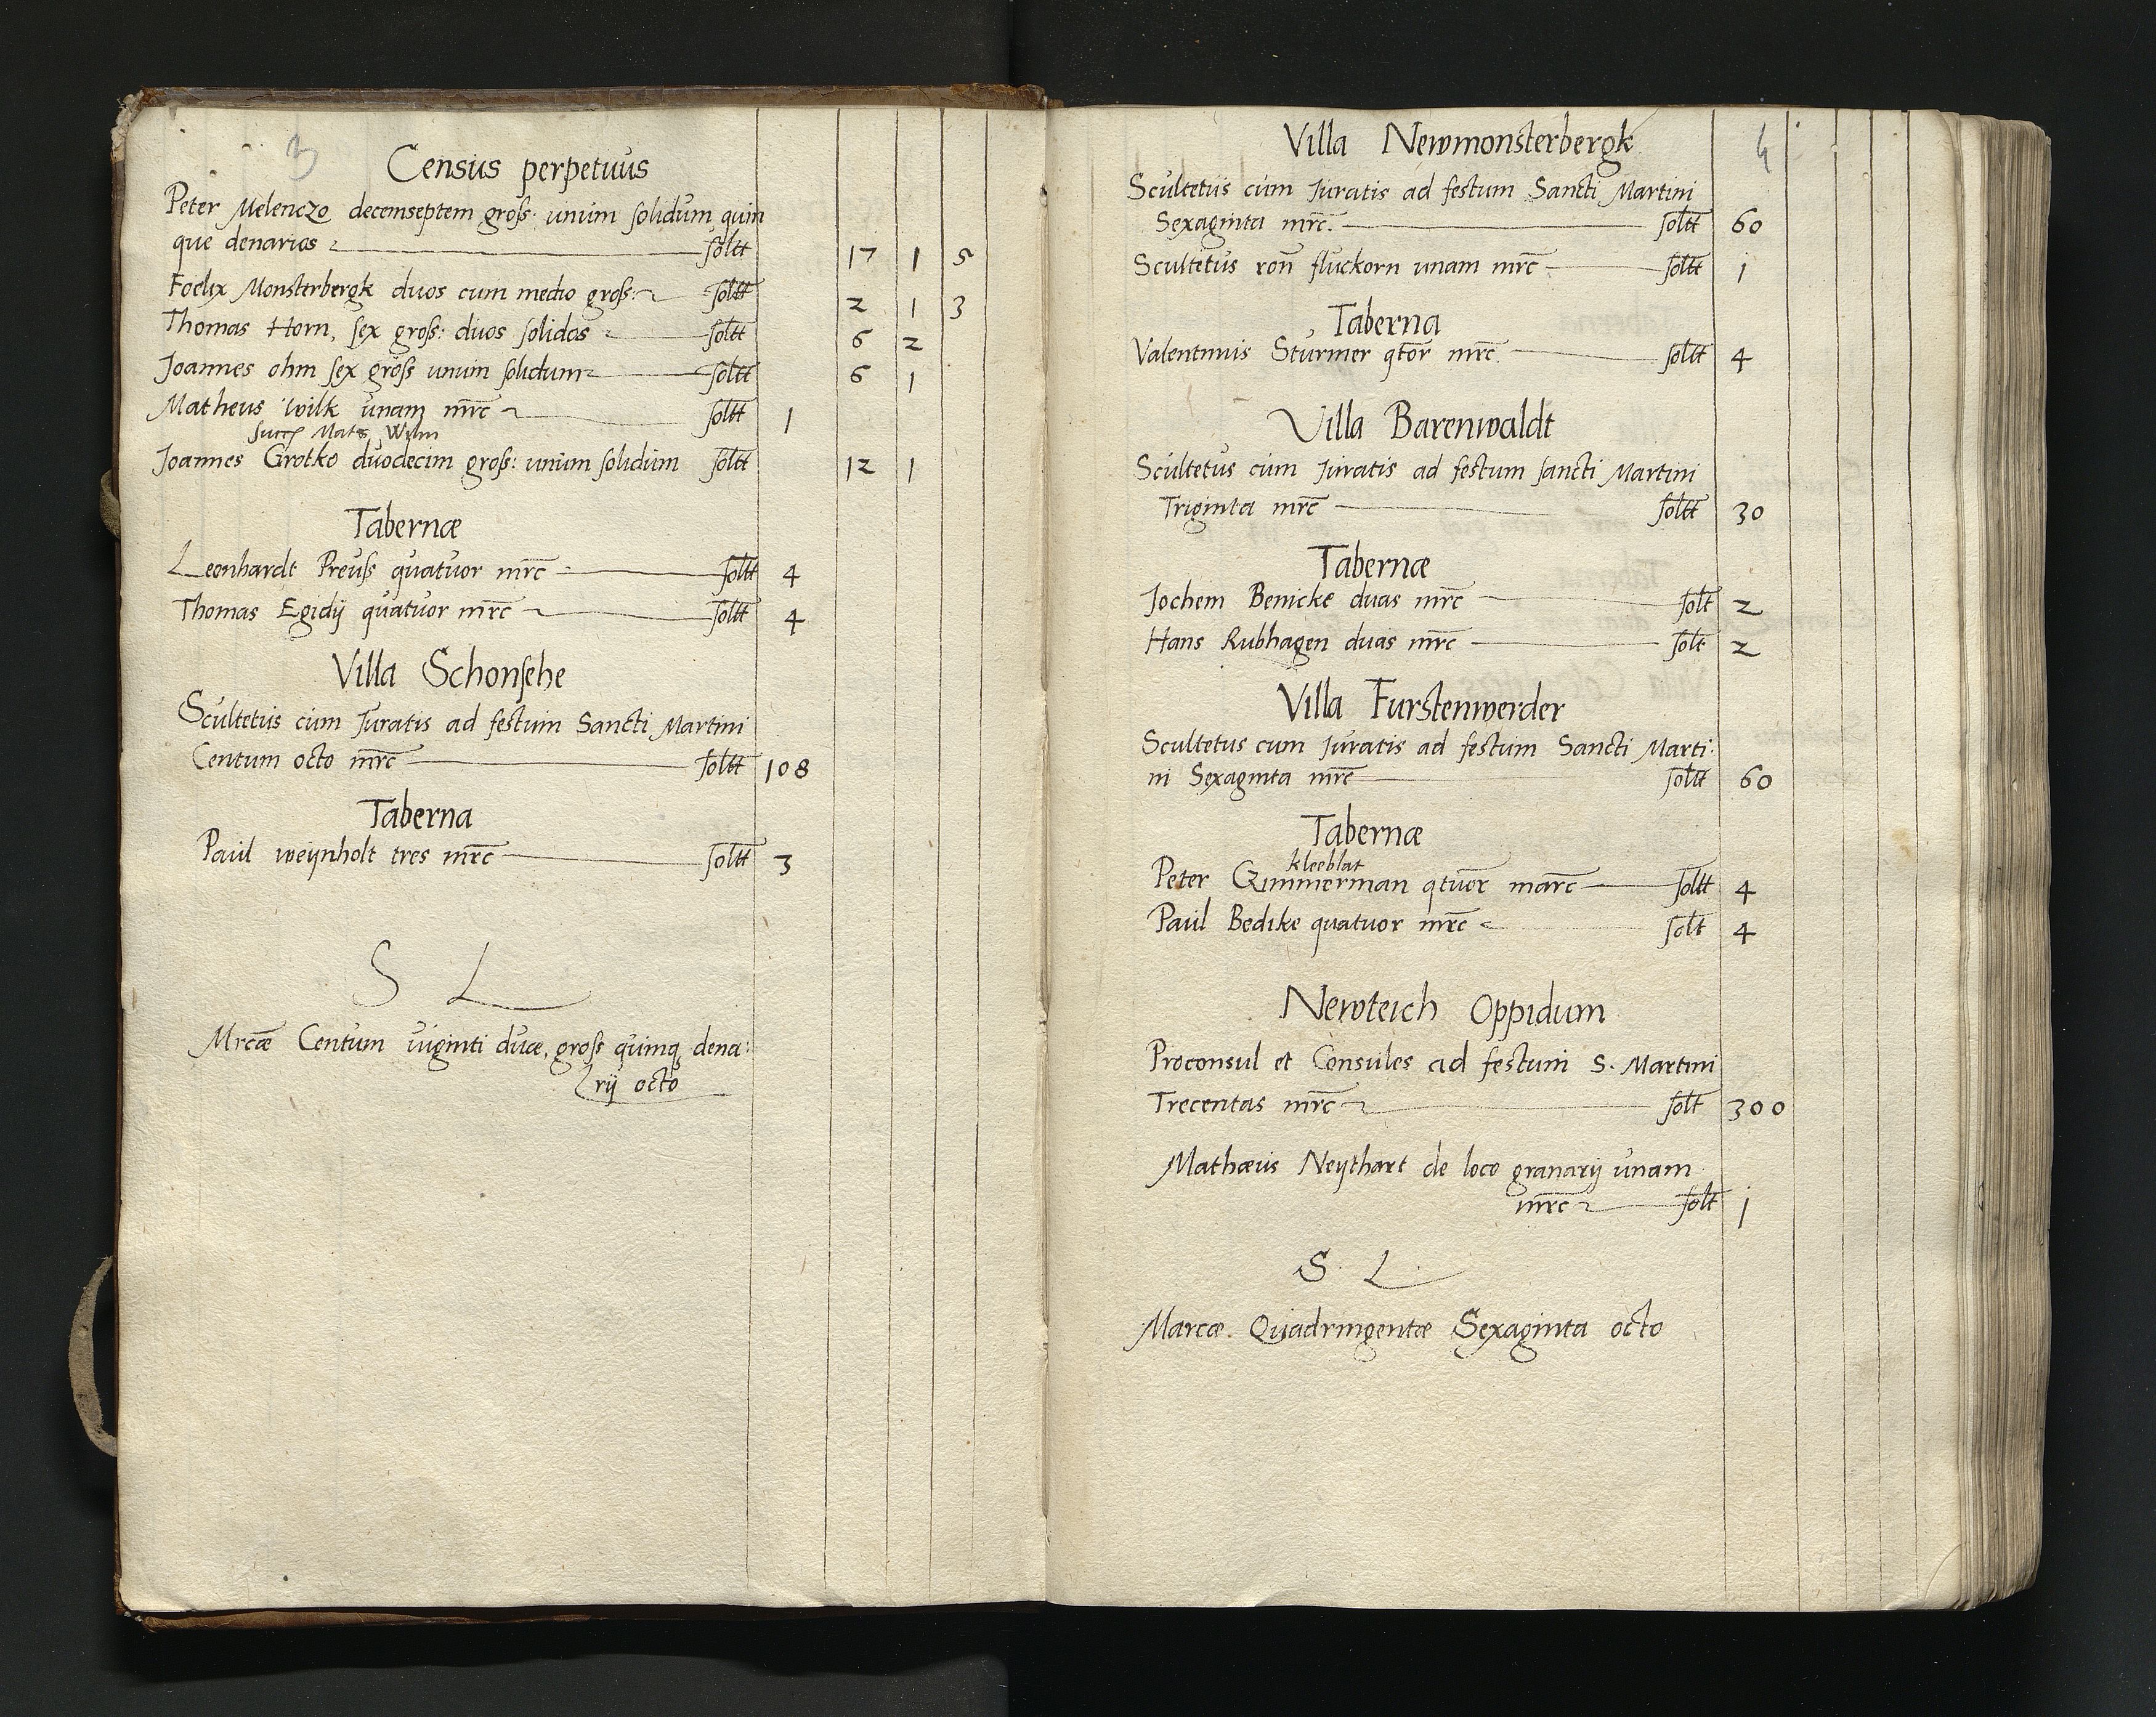 3
Census perpetuus
Peter Melenczo decemseptem groß: unum solidum quin
que denarios soltt 17 1 5
Foelix Monsterbergk duos cum medio groß: soltt 2 1 3
Thomas Horn, sex groß: duos solidos soltt 6 2
Joannes ohm sex groß unum solidum soltt 6 1
Matheus wilk unam mrc soltt 1
Mats Wylm
Joannes Grotko duodecim groß: unum solidum soltt 12 1
Tabernæ
Leonhardt Preuß quatuor mrc soltt 4
Thomas Egidij quatuor mrc soltt 4
Villa Schonsehe
Scultetus cum Juratis ad festum Sancti Martini
Centum octo mrc soltt 108
Taberna
Paul weynholt tres mrc soltt 3
S L
Mrcæ Centum viginti duæ, groß quinq dena:
rij octo
4
Villa Newmonsterbergk
Scultetus cum Juratis ad festum Sancti Martini
Sexaginta mrc. soltt 60
Scultetus von fluckorn unam mrc soltt 1
Taberna
Valentinus Sturmer qtor mrc soltt 4
Villa Barenwaldt
Scultetus cum Juratis ad festum sancti Martini
Triginta mrc soltt 30
Tabernæ
Jochem Benicke duas mrc solt 2
Hans Rubhagen duas mrc solt 2
Villa Furstenwerder
Scultetus cum Juratis ad festum Sancti Marti:
ni Sexaginta mrc soltt 60
Tabernæ
kleeblat
Peter Czimmerman qtuor marc soltt 4
Paul Bedike quatuor mrc solt 4
Newteich Oppidum
Proconsul et Consules ad festum S. Martini
Trecentas mrc solt 300
Mathæus Neythart de loco granarij unam
mrc solt 1
S. L.
Marcæ. Quadringentæ Sexaginta octo